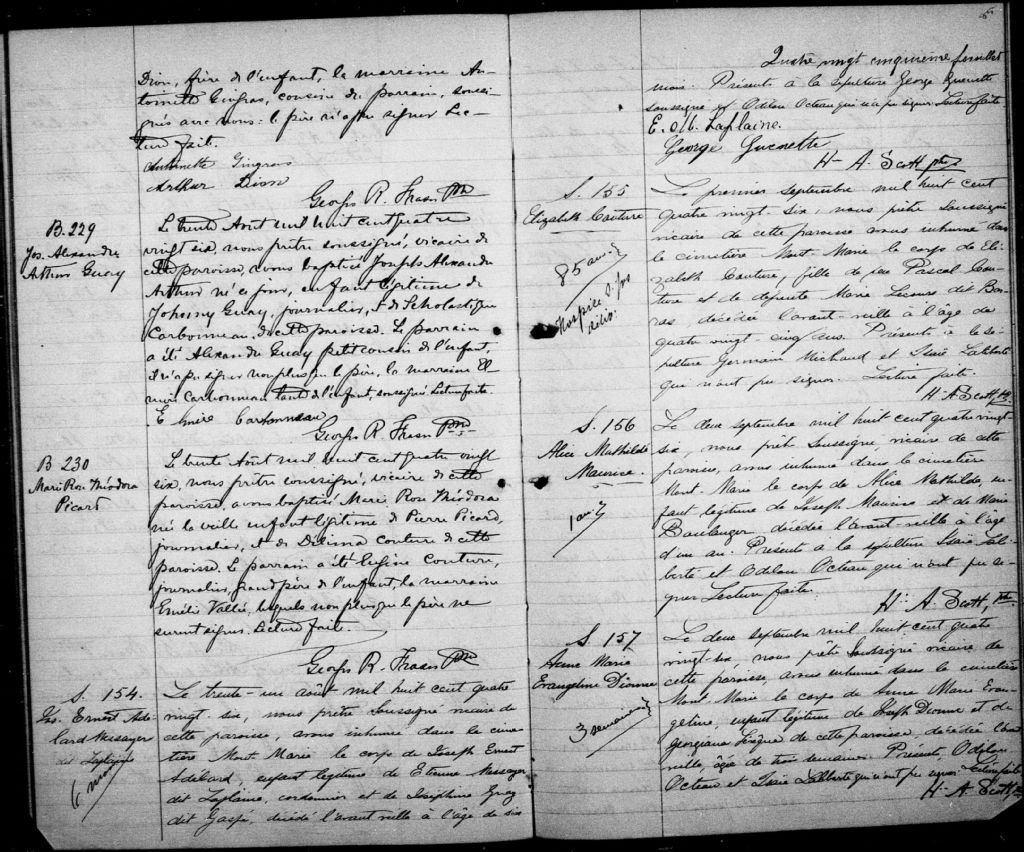 Dion, frère de l'enfant, la marraine An-
toinette Gingras, cousine du parrain, sous-
signés avec nous: le père n'a pu signer Lec-
ture faite.
Antoinette Gingras
Arthur Dion
Georges R. Fraser Ptre
B. 229
Jos. Alexandre
Arthur Guay
Le trente Aout mil huit cent quatre
vingt six, nous prêtre soussigné, vicaire de
cette paroisse, avons baptisé Joseph Alexandre
Arthur né ce jour, enfant légitime de
Johnny Guay, journalier, et de Scholastique
Carbonneau, de cette paroisse. Le parrain
a été Alexandre Guay petit cousin de l'enfant,
il n'a pu signer non plus que le père, la marraine El
mire Carbonneau tante de l'enfant, soussigné Lecture faite.
Elmire Carbonneau
Georges R. Fraser Ptre
B 230
Marie Rose Théodora
Picard
Le trente Aout mil huit cent quatre vingt
six, nous prêtre soussigné, vicaire de cette
paroisse, avons baptisé Marie Rose Théodora
né la veille enfant légitime de Pierre Picard,
journalier, et de Délima Couture de cette
paroisse. Le parrain a été Eugène Couture,
journalier, grand père de l'enfant, la marraine
Emélie Vallée, lesquels non plus que le père ne
surent signer. Lecture faite.
Georges R. Fraser Ptre
S. 154.
Jos. Ernest Adé-
lard Messayer
dit Laplaine
6 mois
Le trente-un août mil huit cent quatre
vingt-six, nous prêtre soussigné vicaire de
cette paroisse, avons inhumé dans le cime
tière Mont Marie le corps de Joseph Ernest
Adélard, enfant légitime de Etienne Messayer
dit Laplaine, cordonnier et de Joséphine Guay
dit Gaspé, décédé l'avant veille à l'âge de six
Quatre vingt cinquième feuillet
mois. Présents à la sépulture George Guenette
soussigné et Odilon Octeau qui n'a pu signer Lecture faite
E. Laplaine.
George Guenette
H-A. Scott ptre
S. 155
Elizabeth Couture
85 ans
Hospice S. Jos
Le premier septembre mil huit cent
quatre vingt-six, nous prêtre soussigné
vicaire de cette paroisse avons inhumé dans
le cimetière Mont-Marie le corps de Eli
zabeth Couture, fille de feu Pascal Cou-
ture et de défunte Marie Lecours dit Bar-
ras, décédée l'avant-veille à l'âge de
quatre vingt-cinq ans. Présents à la sé-
pulture Germain Michaud et Isaïe Laliberté
qui n'ont pu signer. Lecture faite.
H-A Scott, ptre
S. 156
Alice Mathilde
Maurice
1 an
Le deux septembre mil huit cent quatre vingt-
six, nous prêtre soussigné vicaire de cette
paroisse, avons inhumé dans le cimetière
Mont-Marie le corps de Alice Mathilde, en
faut légitime de Joseph Maurice et de Marie
Boulanger, décédée l'avant-veille à l'âge
d'un an. Présents à la sépulture Isaïe Lali-
berté et Odilon Octeau qui n'ont pu si-
gner Lecture faite.
H-A. Scott, ptre
S. 157
Anne Marie
Evangeline Dionne
3 semaines
Le deux septembre mil huit cent quatre
vingt-six, nous prêtre soussigné vicaire de
cette paroisse, avons inhumé dans le cimetière
Mont-Marie le corps de Anne Marie Evan-
geline, enfant légitime de Joseph Dionne et de
Georgiana de cette paroisse, décédée l'avant
veille, âgée de trois semaines. Présents, Odilon
Octeau et Isaïe Laliberté qui n'ont pu signer. Lecture faite
H-A. Scott, ptre